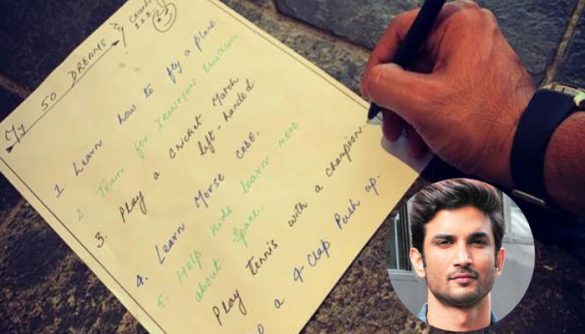 My 50 DREAMS
1. Learn how to fly a plane
2. Train for IRONMAN triathlon
3. Play a cricket match
left-handed
4. Learn Morse Code.
5. Help kids learn more
about Space.
Play tennis with a champion
a 4 Clap Push up.